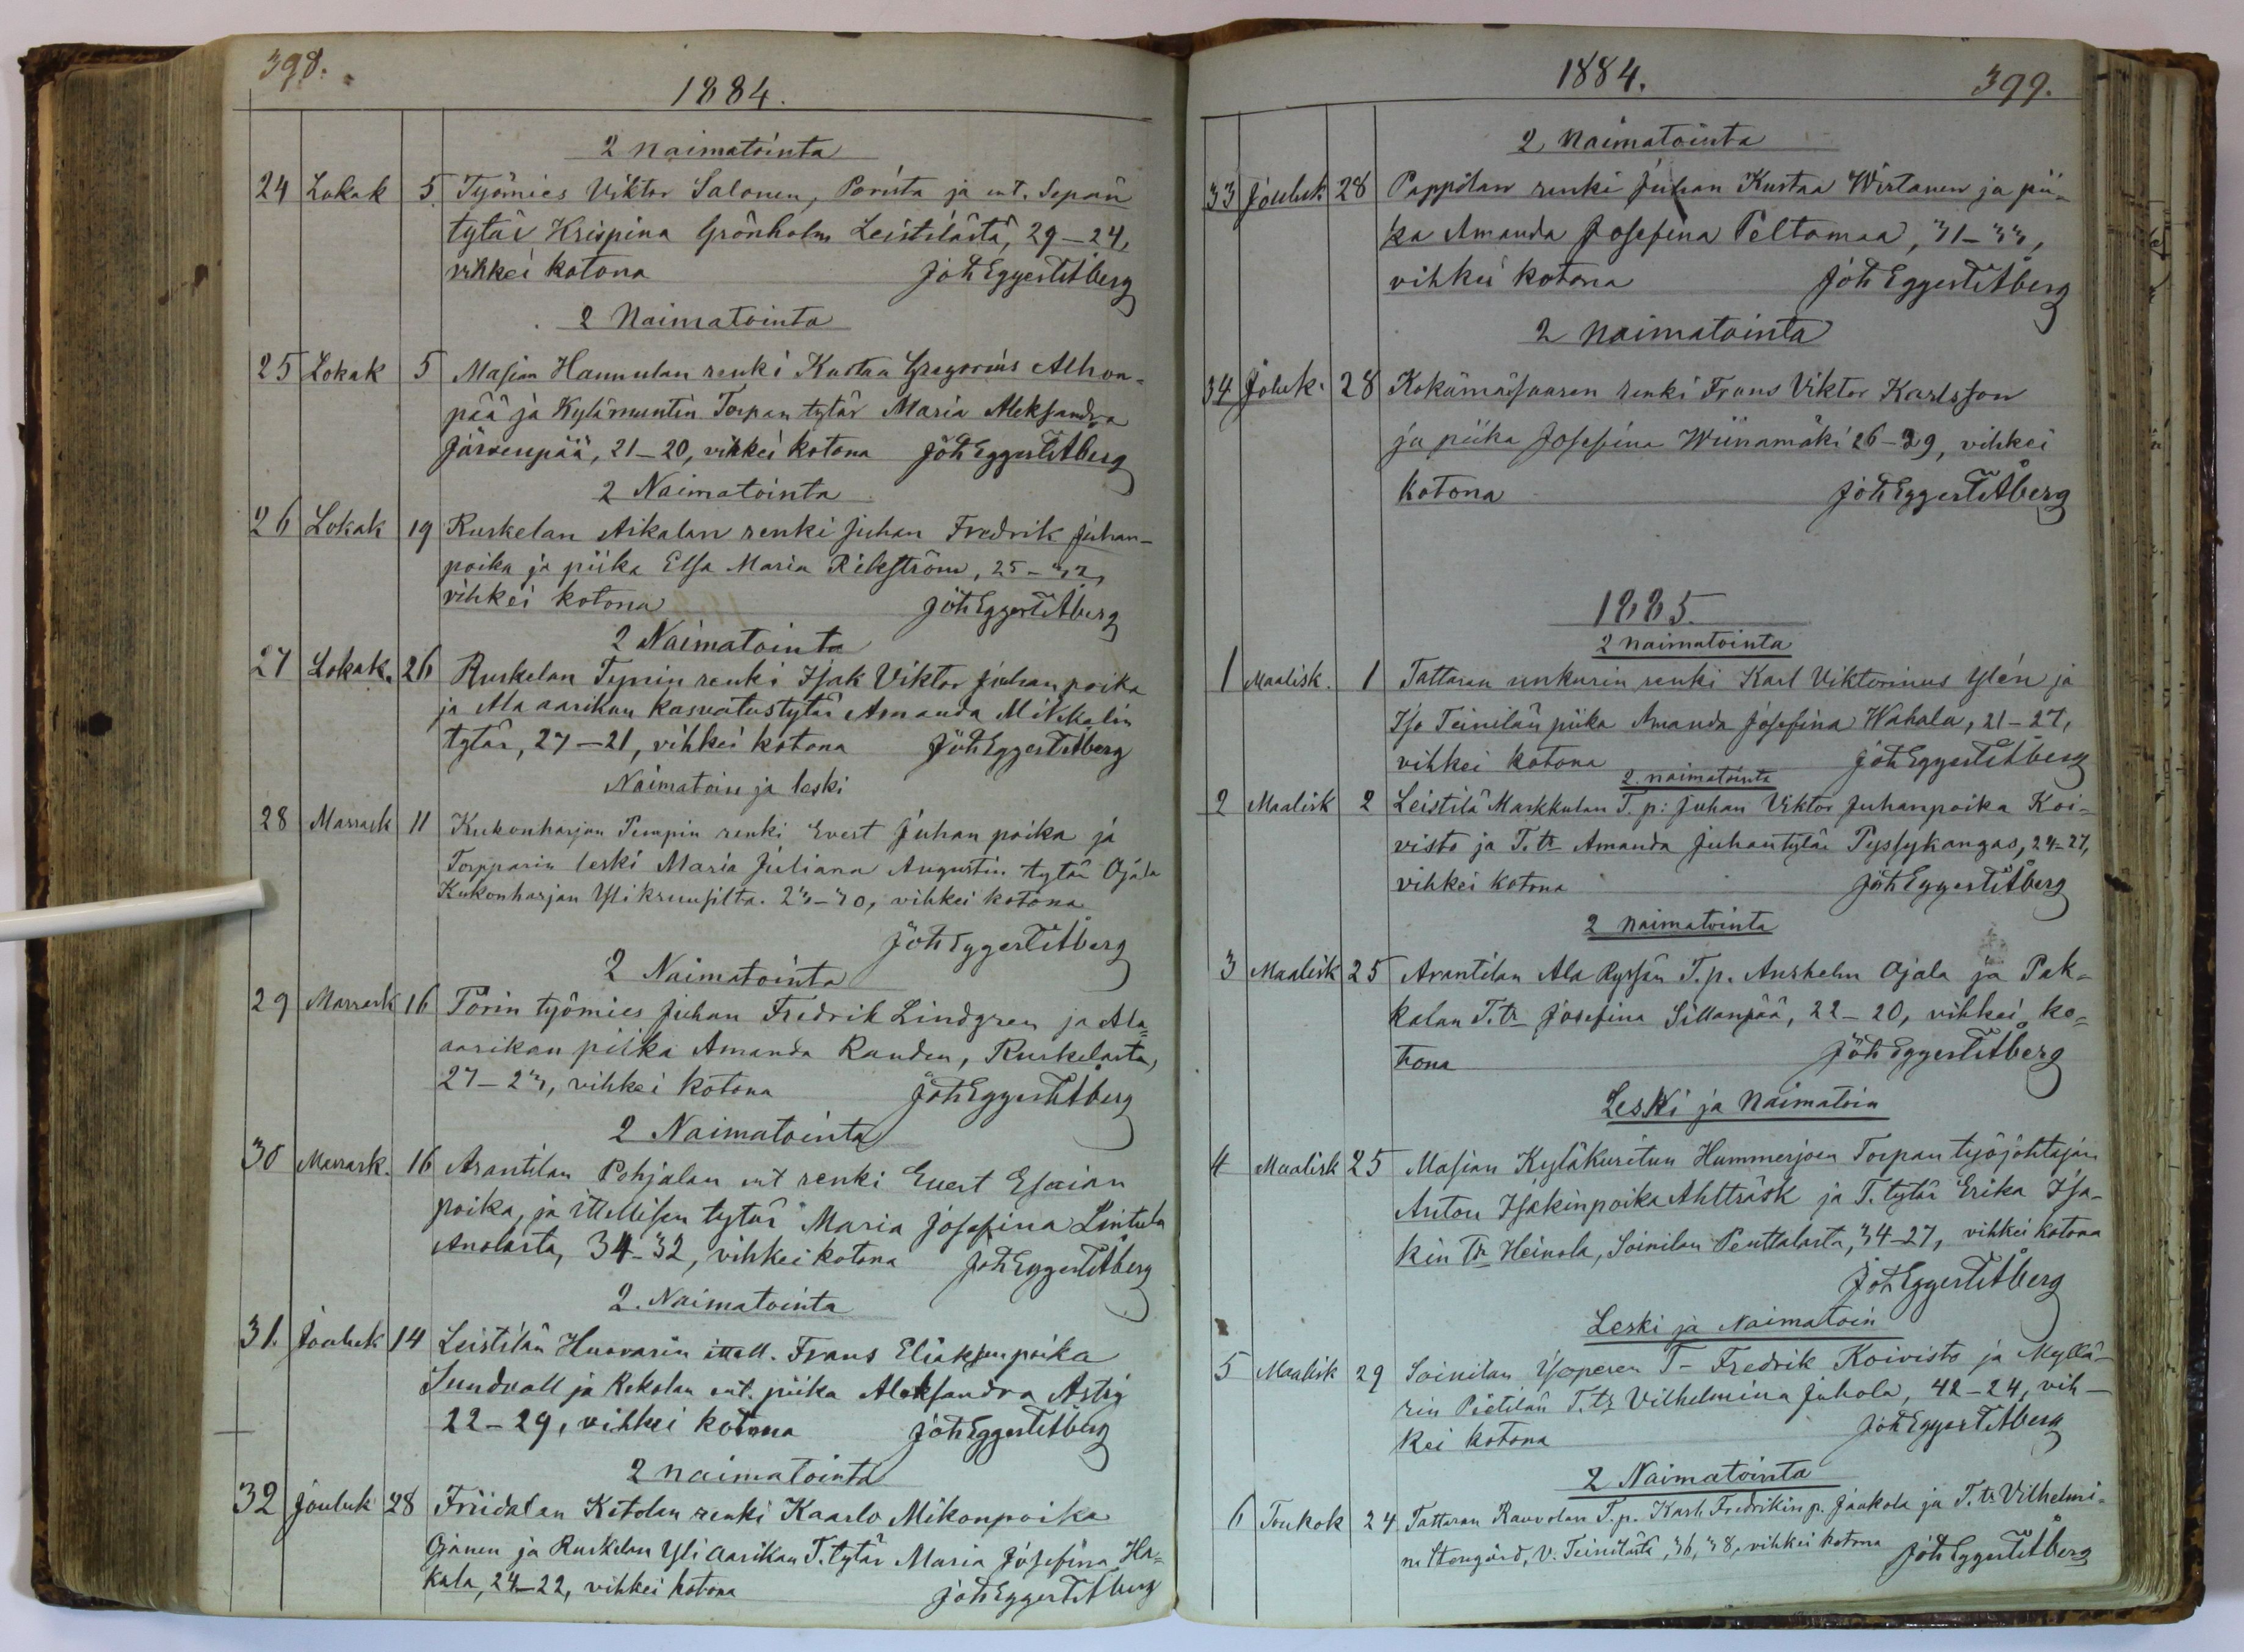 398.
1884.
2 naimatointa
24 Lokak 5 Työmies Viktor Salonen, Porista ja ent. Sepän
tytär Krispina Grönholm Leistilästä, 29–24,
vihkei kotona Joh Eggert Åberg
2 Naimatointa
25 Lokak 5 Masian Hannulan renki Kustaa Gregorius Alhon-
pää ja Kylämuntin Torpan tytär Maria Aleksandra
Järvenpää, 21–20, vihkei kotona Joh Eggert Åberg
2 Naimatointa
26 Lokak 19 Ruskelan Aikalan renki Juhan Fredrik Juhan-
poika ja piika Elsa Maria Rikström, 25–32,
vihkei kotona Joh Eggert Åberg
2 Naimatointa
27 Lokak. 26 Ruskelan renki Isak Viktor Juhan poika
ja Ala aarikan kasvatustytär Amanda Mikkelin
tytär, 27–21, vihkei kotona Joh Eggert Åberg
Naimatoin ja leski
28 Marrask 11 Kukonharjan Pempin renki Evert Juhan poika ja
Torpparin leski Maria Juliana Augustin tytär Ojala
Kukonharjan 23–30, vihkei kotona
Joh Eggert Åberg
2 Naimatointa
29 Marrask 16 Porin työmies Juhan Fredrik Lindgren ja Ala-
aarikan piika Amanda Randen, Ruskelasta,
27–23, vihkei kotona Joh Eggert Åberg
2 Naimatointa
30 Marrask. 16 Arantilan Pohjalan ent renki Evert Esaian
poika, ja ittellisen tytär Maria Josefina Lintula
Anolasta, 34–32, vihkei kotona Joh Eggert Åberg
2. Naimatointa
31. Jouluk 14 Leistilän Huovarin ittell. Frans Eliaksen poika
Sundvall ja Kekolan ent. piika Aleksandra
22–29, vihkei kotona Joh Eggert Åberg
2 naimatointa
32 Jouluk 28 Friidalan Ketolan renki Kaarlo Mikonpoika
Ojanen ja Ruskelan Yli aarikan T. tytär Maria Josefina Ha-
kala, 24–22, vihkei kotona Joh Eggert Åberg
1884. 399.
2 Naimatointa
33 Jouluk 28 Pappilan renki Juhan Kustaa Wirtanen ja pii-
ka Amanda Josefina Peltomaa, 31–33,
vihkei kotona Joh Eggert Åberg
2 naimatointa
34 Joluk. 28 Kokämäsaaren renki Frans Viktor Karlsson
ja piika Josefina Wiinamäki 26–29, vihkei
kotona Joh Eggert Åberg
1885.
2 naimatointa
1 Maalisk. 1 Tattaran unkurin renki Karl Viktorinus Ylén ja
Iso Teinilän piika Amanda Josefina Wahala, 21–27,
vihkei kotona Joh Eggert Åberg
2. naimatointa
2 Maalisk 2 Leistilä Markkulan T. p: Juhan Viktor Juhanpoika Koi-
visto ja T. tr Amanda Juhantytär Pyssykangas, 24–27,
vihkei kotona Joh Eggert Åberg
2 naimatointa
3 Maalisk 25 Arantilan Ala Ryssän T. p. Anshelm Ojala ja Pak-
kalan T. tr Josefina Sillanpää, 22–20, vihkei ko-
tona Joh Eggert Åberg
Leski ja Naimatoin
4 Maalisk 25 Masian Kyläkuritun Hammerjoen Torpan työjohtajan
Anton Isakinpoika Ahlträsk ja T. tytär Erika Isa-
kin Tr Heinola, Soinilan Penttalasta, 34–27, vihkei kotona
Joh Eggert Åberg
Leski ja Naimatoin
5 Maalisk 29 Soinilan Yoperen T– Fredrik Koivisto ja Myllä-
rin Pietilän T. tr Vilhelmina Juhola, 42–24, vih-
kei kotona Joh Eggert Åberg
2 Naimatointa
6 Toukok 24 Tattaran Rauvolan T. p. Karl Fredrikin p. Jaakola ja T. tr Vilhelmi-
na Stengård, V. Teinilästä, 36, 38, vihkei kotona Joh Eggert Åberg